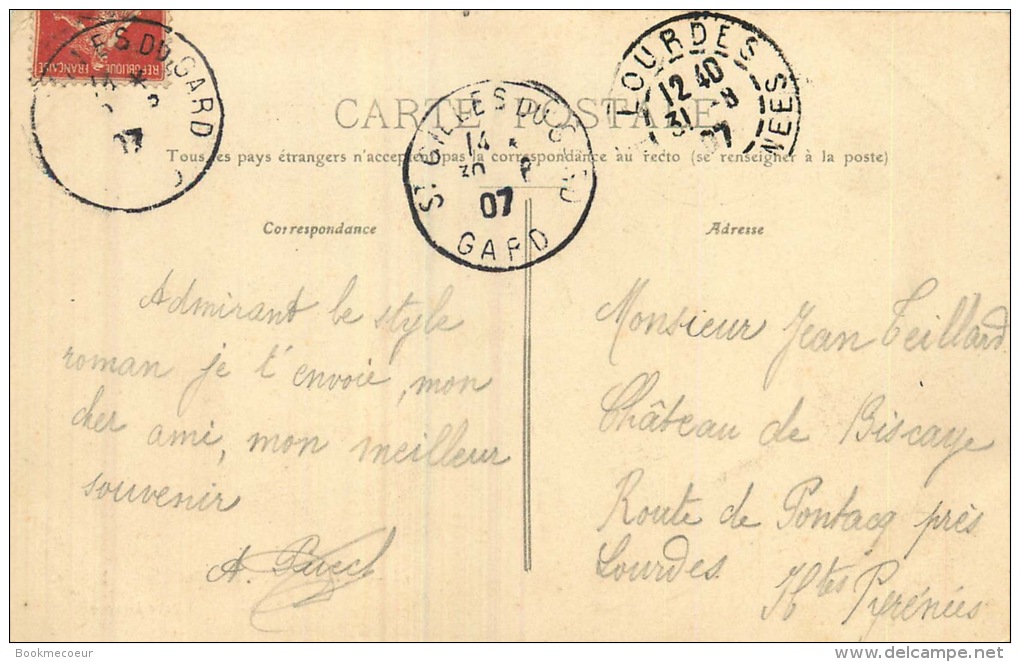 REPUBLIQUE FRANÇAISE
LES DU GARD
07
ST GILLES DU GARD
14 *
30 8
07
GARD
LOURDES
12 40
31 - 8
07
NEES
CARTE POSTALE
Tous les pays étrangers n'acceptent pas la correspondance au recto (se renseigner à la poste)
Correspondance
Admirant le style
roman je t'envoie, mon
cher ami, mon meilleur
souvenir
A. Puech
Adresse
Monsieur Jean Teillard
Château de Biscaye
Route de Pontacq près
Lourdes.
Htes Pyrénées
Bookmecoeur
www.delcampe.net